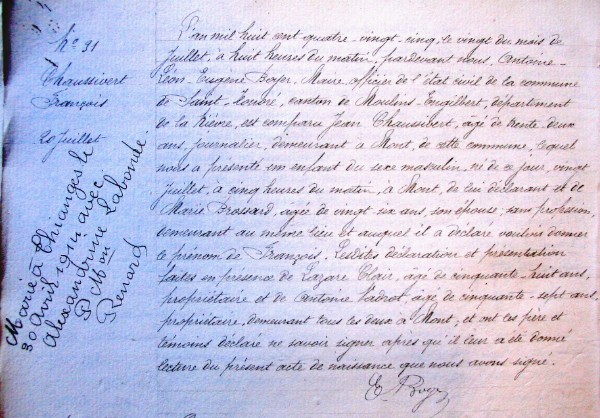 N° 31
Chaussivert
François
20 Juillet
Marié à Thianges le
30 Avril 1911 avec
Alexandrine Labonde
Renard
L'an mil huit cent quatre-vingt-cinq, le vingt du mois de
Juillet, à huit heures du matin, pardevant nous, Antoine
Léon Eugène Boyer, Maire officier de l'état civil de la commune
de Saint-Honoré, canton de Moulins-Engilbert, département
de la Nièvre, est comparu Jean Chaussivert, âgé de trente-deux
ans, journalier, demeurant à Mont, de cette commune, lequel
nous a présenté un enfant du sexe masculin, né de ce jour, vingt
Juillet, à cinq heures du matin, à Mont, de lui déclarant et de
Marie Brossard, agée de vingt six ans, son épouse; sans profession,
demeurant au même lieu et auquel il a déclaré vouloir donner
le prénom de François, Lesdites déclaration et présentation
faites en présence de Lazare Clair, âgé de cinquante-huit ans,
propriétaire et de Antoine âgé de cinquante-sept ans,
propriétaire, demeurant tous les deux à Mont; et ont les père et
témoins déclaré ne savoir signer après qu'il leur a été donné
lecture du présent acte de naissance que nous avons signé.
E. Boyer